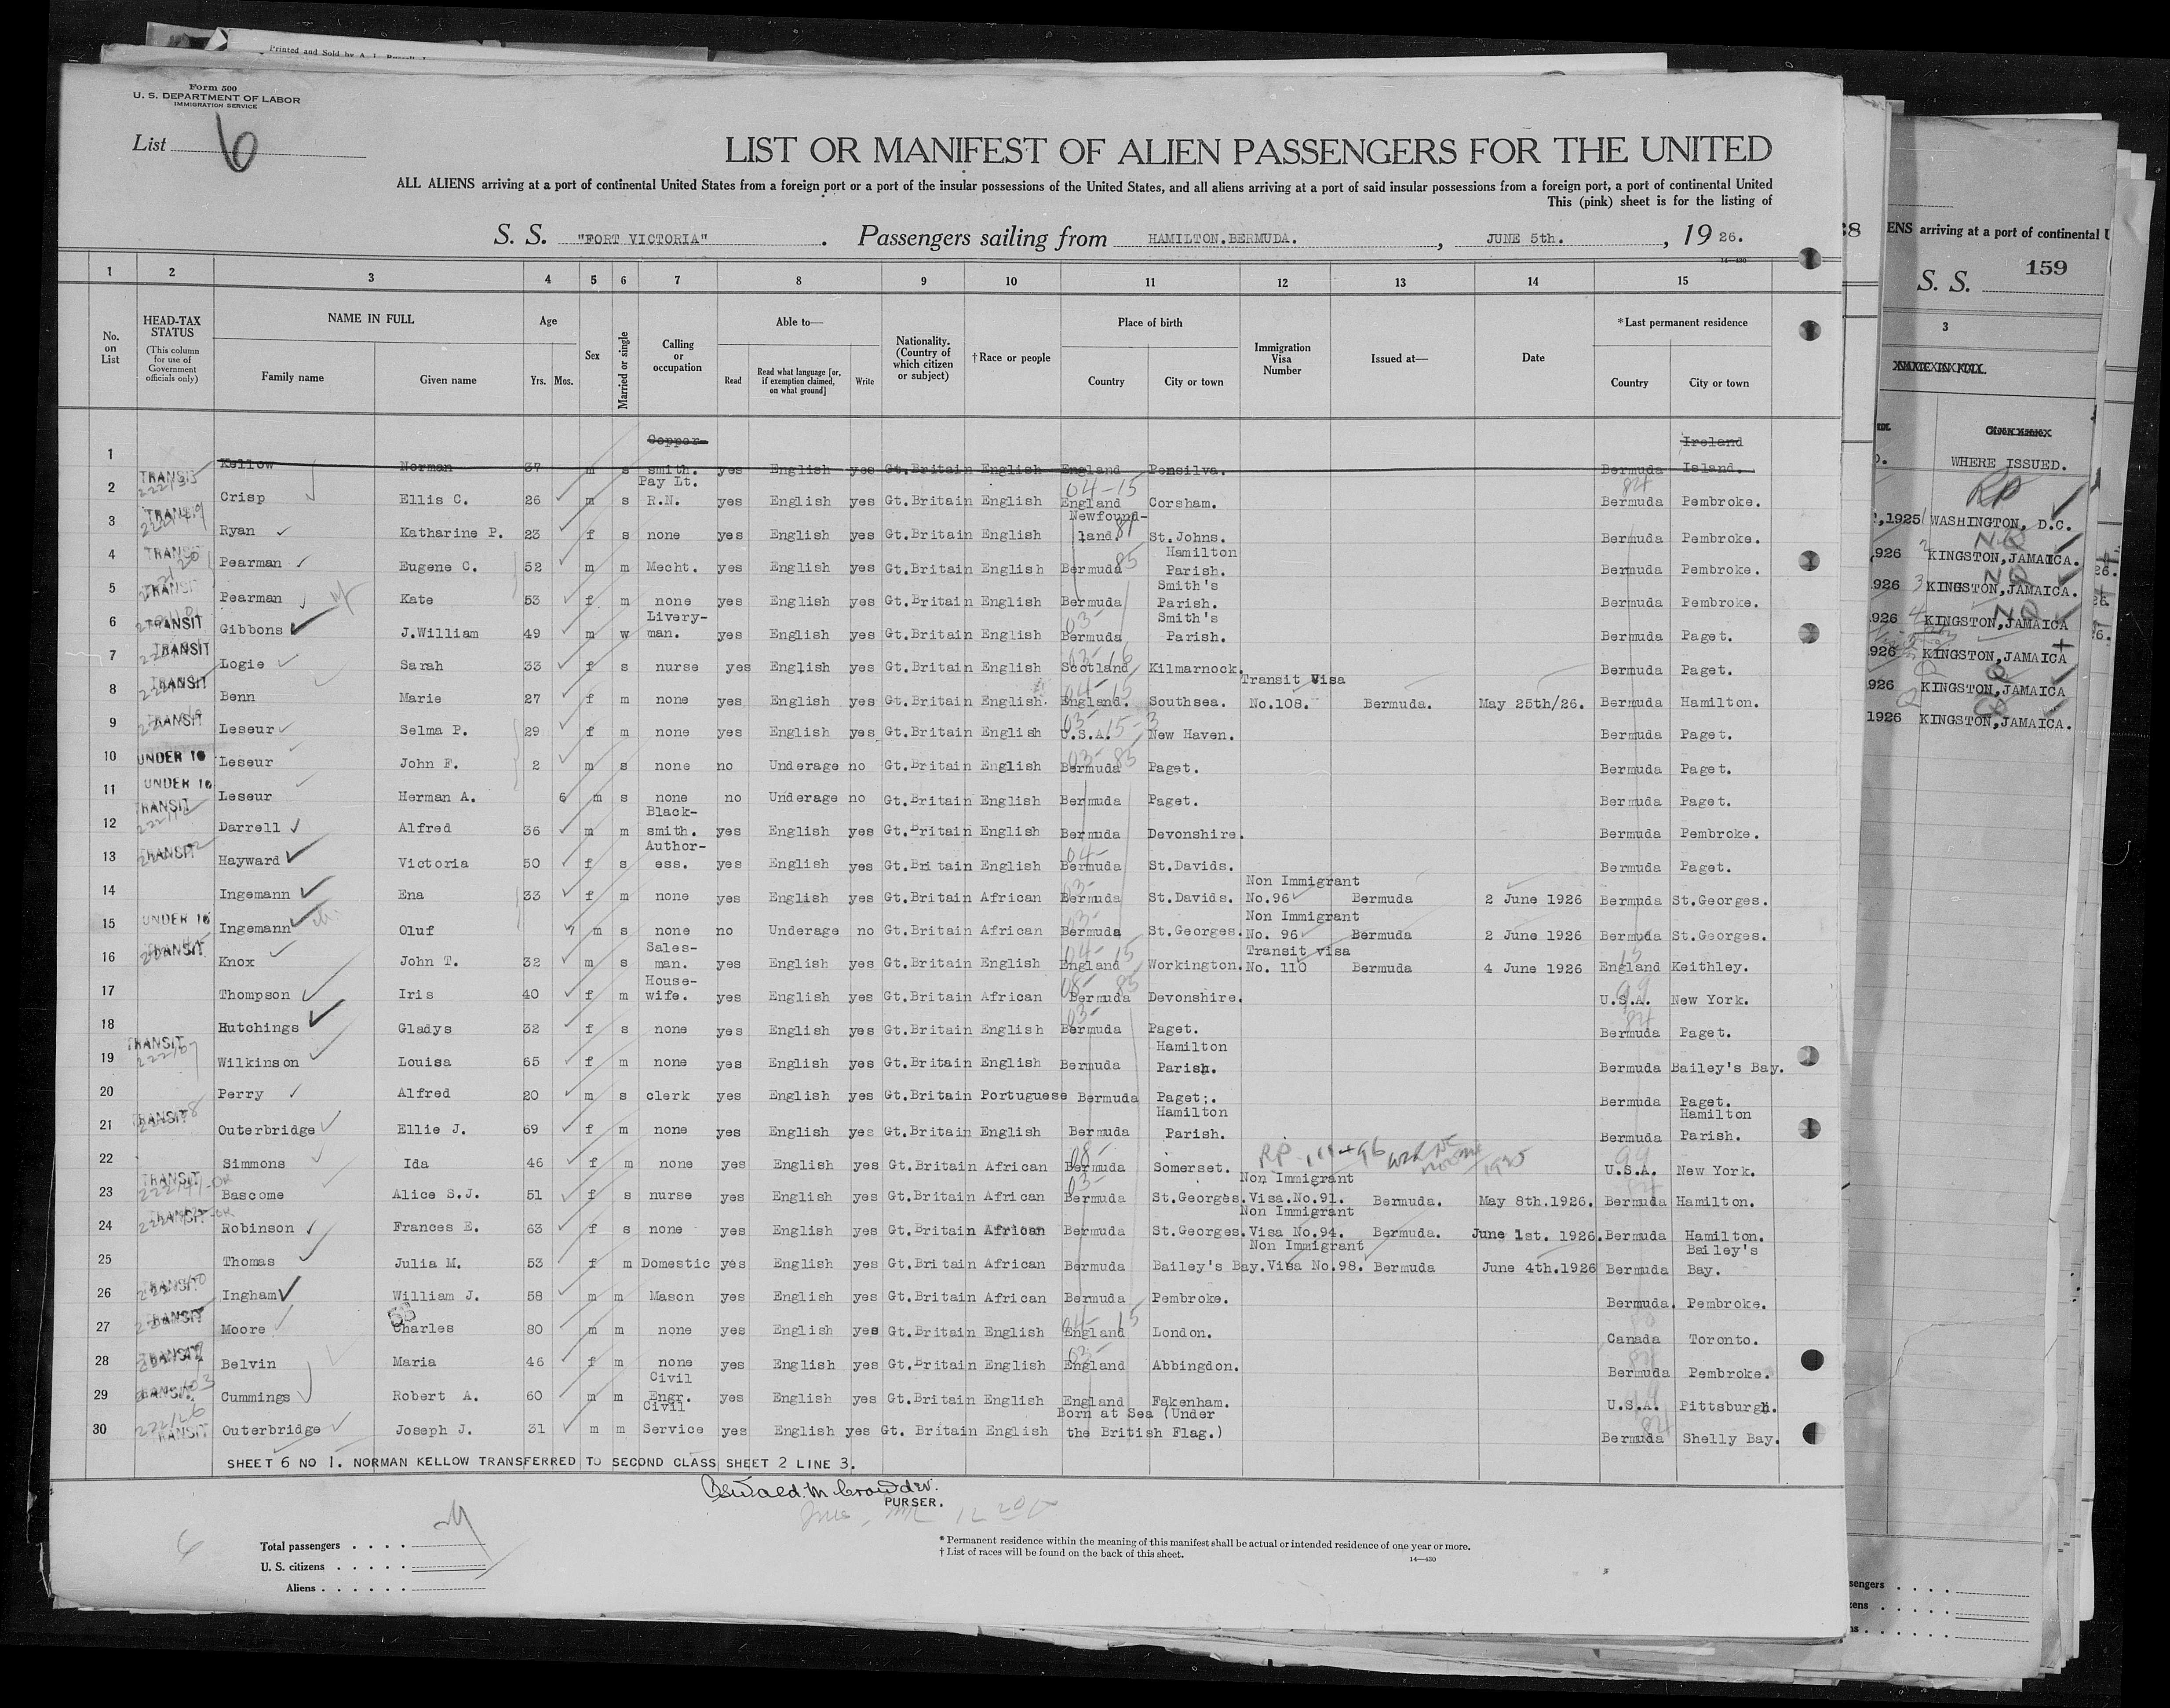 Printed and Sold by A. L.
Form 500
U. S. DEPARTMENT OF LABOR
IMMIGRATION SERVICE
List 6
LIST OR MANIFEST OF ALIEN PASSENGERS FOR THE UNITED
ALL ALIENS arriving at a port of continental United States from a foreign port or a port of the insular possessions of the United States, and all aliens arriving at a port of said insular possessions from a foreign port, a port of continental United
This (pink) sheet is for the listing of
S. S. "FORT VICTORIA". Passengers sailing from HAMILTON.BERMUDA. , JUNE 5th. , 19 26.
14-430
1 2 3 4 5 6 7 8 9 10 11 12 13 14 15
No. on List
HEAD-TAX STATUS (This column for use of Government officials only)
NAME IN FULL Family name Given name
Age Yrs. Mos.
Sex
Married or single
Calling or occupation
Able to— Read Read what language [or, if exemption claimed, on what ground] Write
Nationality. (Country of which citizen or subject)
†Race or people
Place of birth Country City or town
Immigration Visa Number
Issued at—
Date
*Last permanent residence Country City or town
1 Kellow Norman 37 m s Copper-smith. yes English yes Gt.Britain English England Pensilva. Bermuda Ireland Island.
2 TRANSIT Crisp Ellis C. 26 m s Pay Lt. R.N. yes English yes Gt.Britain English 04-15 England Corsham. 84 Bermuda Pembroke.
3 TRANSIT Ryan Katharine P. 23 f s none yes English yes Gt.Britain English Newfound-land. 81 St.Johns. Bermuda Pembroke.
4 TRANSIT Pearman Eugene C. 52 m m Mecht. yes English yes Gt.Britain English Bermuda 85 Hamilton Parish. Bermuda Pembroke.
5 TRANSIT Pearman Kate 53 f m none yes English yes Gt.Britain English Bermuda Smith's Parish. Bermuda Pembroke.
6 TRANSIT Gibbons J.William 49 m w Livery-man. yes English yes Gt.Britain English 03- Bermuda Smith's Parish. Bermuda Paget.
7 TRANSIT Logie Sarah 33 f s nurse yes English yes Gt.Britain English 03-16 Scotland Kilmarnook. Bermuda Paget.
8 TRANSIT Benn Marie 27 f m none yes English yes Gt.Britain English. 04-15 England. Southsea. Transit Visa No.108. Bermuda. May 25th/26. Bermuda Hamilton.
9 TRANSIT Leseur Selma P. 29 f m none yes English yes Gt.Britain English 03-15-3 U.S.A. New Haven. Bermuda Paget.
10 UNDER 16 Leseur John F. 2 m s none no Underage no Gt.Britain English 03-85 Bermuda Paget. Bermuda Paget.
11 UNDER 16 Leseur Herman A. 6 m s none no Underage no Gt.Britain English Bermuda Paget. Bermuda Paget.
12 TRANSIT Darrell Alfred 36 m m Black-smith. yes English yes Gt.Britain English Bermuda Devonshire. Bermuda Pembroke.
13 TRANSIT Hayward Victoria 50 f s Author-ess. yes English yes Gt.Britain English 04- Bermuda St.Davids. Bermuda Paget.
14 Ingemann Ena 33 f m none yes English yes Gt.Britain African 03- Bermuda St.Davids. Non Immigrant No.96 Bermuda 2 June 1926 Bermuda St.Georges.
15 UNDER 16 Ingemann Oluf 7 m s none no Underage no Gt.Britain African 03- Bermuda St.Georges. Non Immigrant No. 96 Bermuda 2 June 1926 Bermuda St.Georges.
16 TRANSIT Knox John T. 32 m s Sales-man. yes English yes Gt.Britain English 04-15 England Workington. Transit visa No. 110 Bermuda 4 June 1926 15 England Keithley.
17 Thompson Iris 40 f m House-wife. yes English yes Gt.Britain African 08-85 Bermuda Devonshire. 99 U.S.A. New York.
18 Hutchings Gladys 32 f s none yes English yes Gt.Britain English 03- Bermuda Paget. 84 Bermuda Paget.
19 TRANSIT Wilkinson Louisa 65 f m none yes English yes Gt.Britain English Bermuda Hamilton Parish. Bermuda Bailey's Bay.
20 Perry Alfred 20 m s clerk yes English yes Gt.Britain Portuguese Bermuda Paget;. Bermuda Paget.
21 TRANSIT Outerbridge Ellie J. 69 f m none yes English yes Gt.Britain English Bermuda Hamilton Parish. Bermuda Hamilton Parish.
22 Simmons Ida 46 f m none yes English yes Gt.Britain African 08- Bermuda Somerset. RP 1925 99 U.S.A. New York.
23 TRANSIT Bascome Alice S.J. 51 f s nurse yes English yes Gt.Britain African 03- Bermuda St.Georges. Non Immigrant Visa.No.91. Bermuda. May 8th.1926. Bermuda Hamilton.
24 TRANSIT Robinson Frances E. 63 f s none yes English yes Gt.Britain African Bermuda St.Georges. Non Immigrant Visa No.94. Bermuda. June 1st. 1926. Bermuda Hamilton.
25 Thomas Julia M. 53 f m Domestic yes English yes Gt.Britain African Bermuda Bailey's Bay. Non Immigrant Visa No.98. Bermuda June 4th.1926 Bermuda Bailey's Bay.
26 TRANSIT Ingham William J. 58 m m Mason yes English yes Gt.Britain African Bermuda Pembroke. Bermuda. Pembroke.
27 TRANSIT Moore Charles 80 m m none yes English yes Gt.Britain English 04-15 England London. Canada Toronto.
28 TRANSIT Belvin Maria 46 f m none yes English yes Gt.Britain English 03- England Abbingdon. 84 Bermuda Pembroke.
29 TRANSIT Cummings Robert A. 60 m m Civil Engr. yes English yes Gt.Britain English England Fakenham. U.S.A. Pittsburgh.
30 TRANSIT Outerbridge Joseph J. 31 m m Civil Service yes English yes Gt. Britain English Born at Sea (Under the British Flag.) 84 Bermuda Shelly Bay.
SHEET 6 NO 1. NORMAN KELLOW TRANSFERRED TO SECOND CLASS SHEET 2 LINE 3.
Oswald.M Crowder.
PURSER.
6
Total passengers . . . .
U. S. citizens . . . . .
Aliens . . . . . .
* Permanent residence within the meaning of this manifest shall be actual or intended residence of one year or more.
† List of races will be found on the back of this sheet.
14-430
ENS arriving at a port of continental U
S. S. 159
3
WHERE ISSUED.
RP
,1925 WASHINGTON, D.C.
NQ
926 2 KINGSTON,JAMAICA.
NQ
926 3 KINGSTON,JAMAICA.
NQ
926 4 KINGSTON,JAMAICA
926 KINGSTON,JAMAICA
Q
926 KINGSTON,JAMAICA
Q
1926 KINGSTON,JAMAICA.
26.
26.
26.